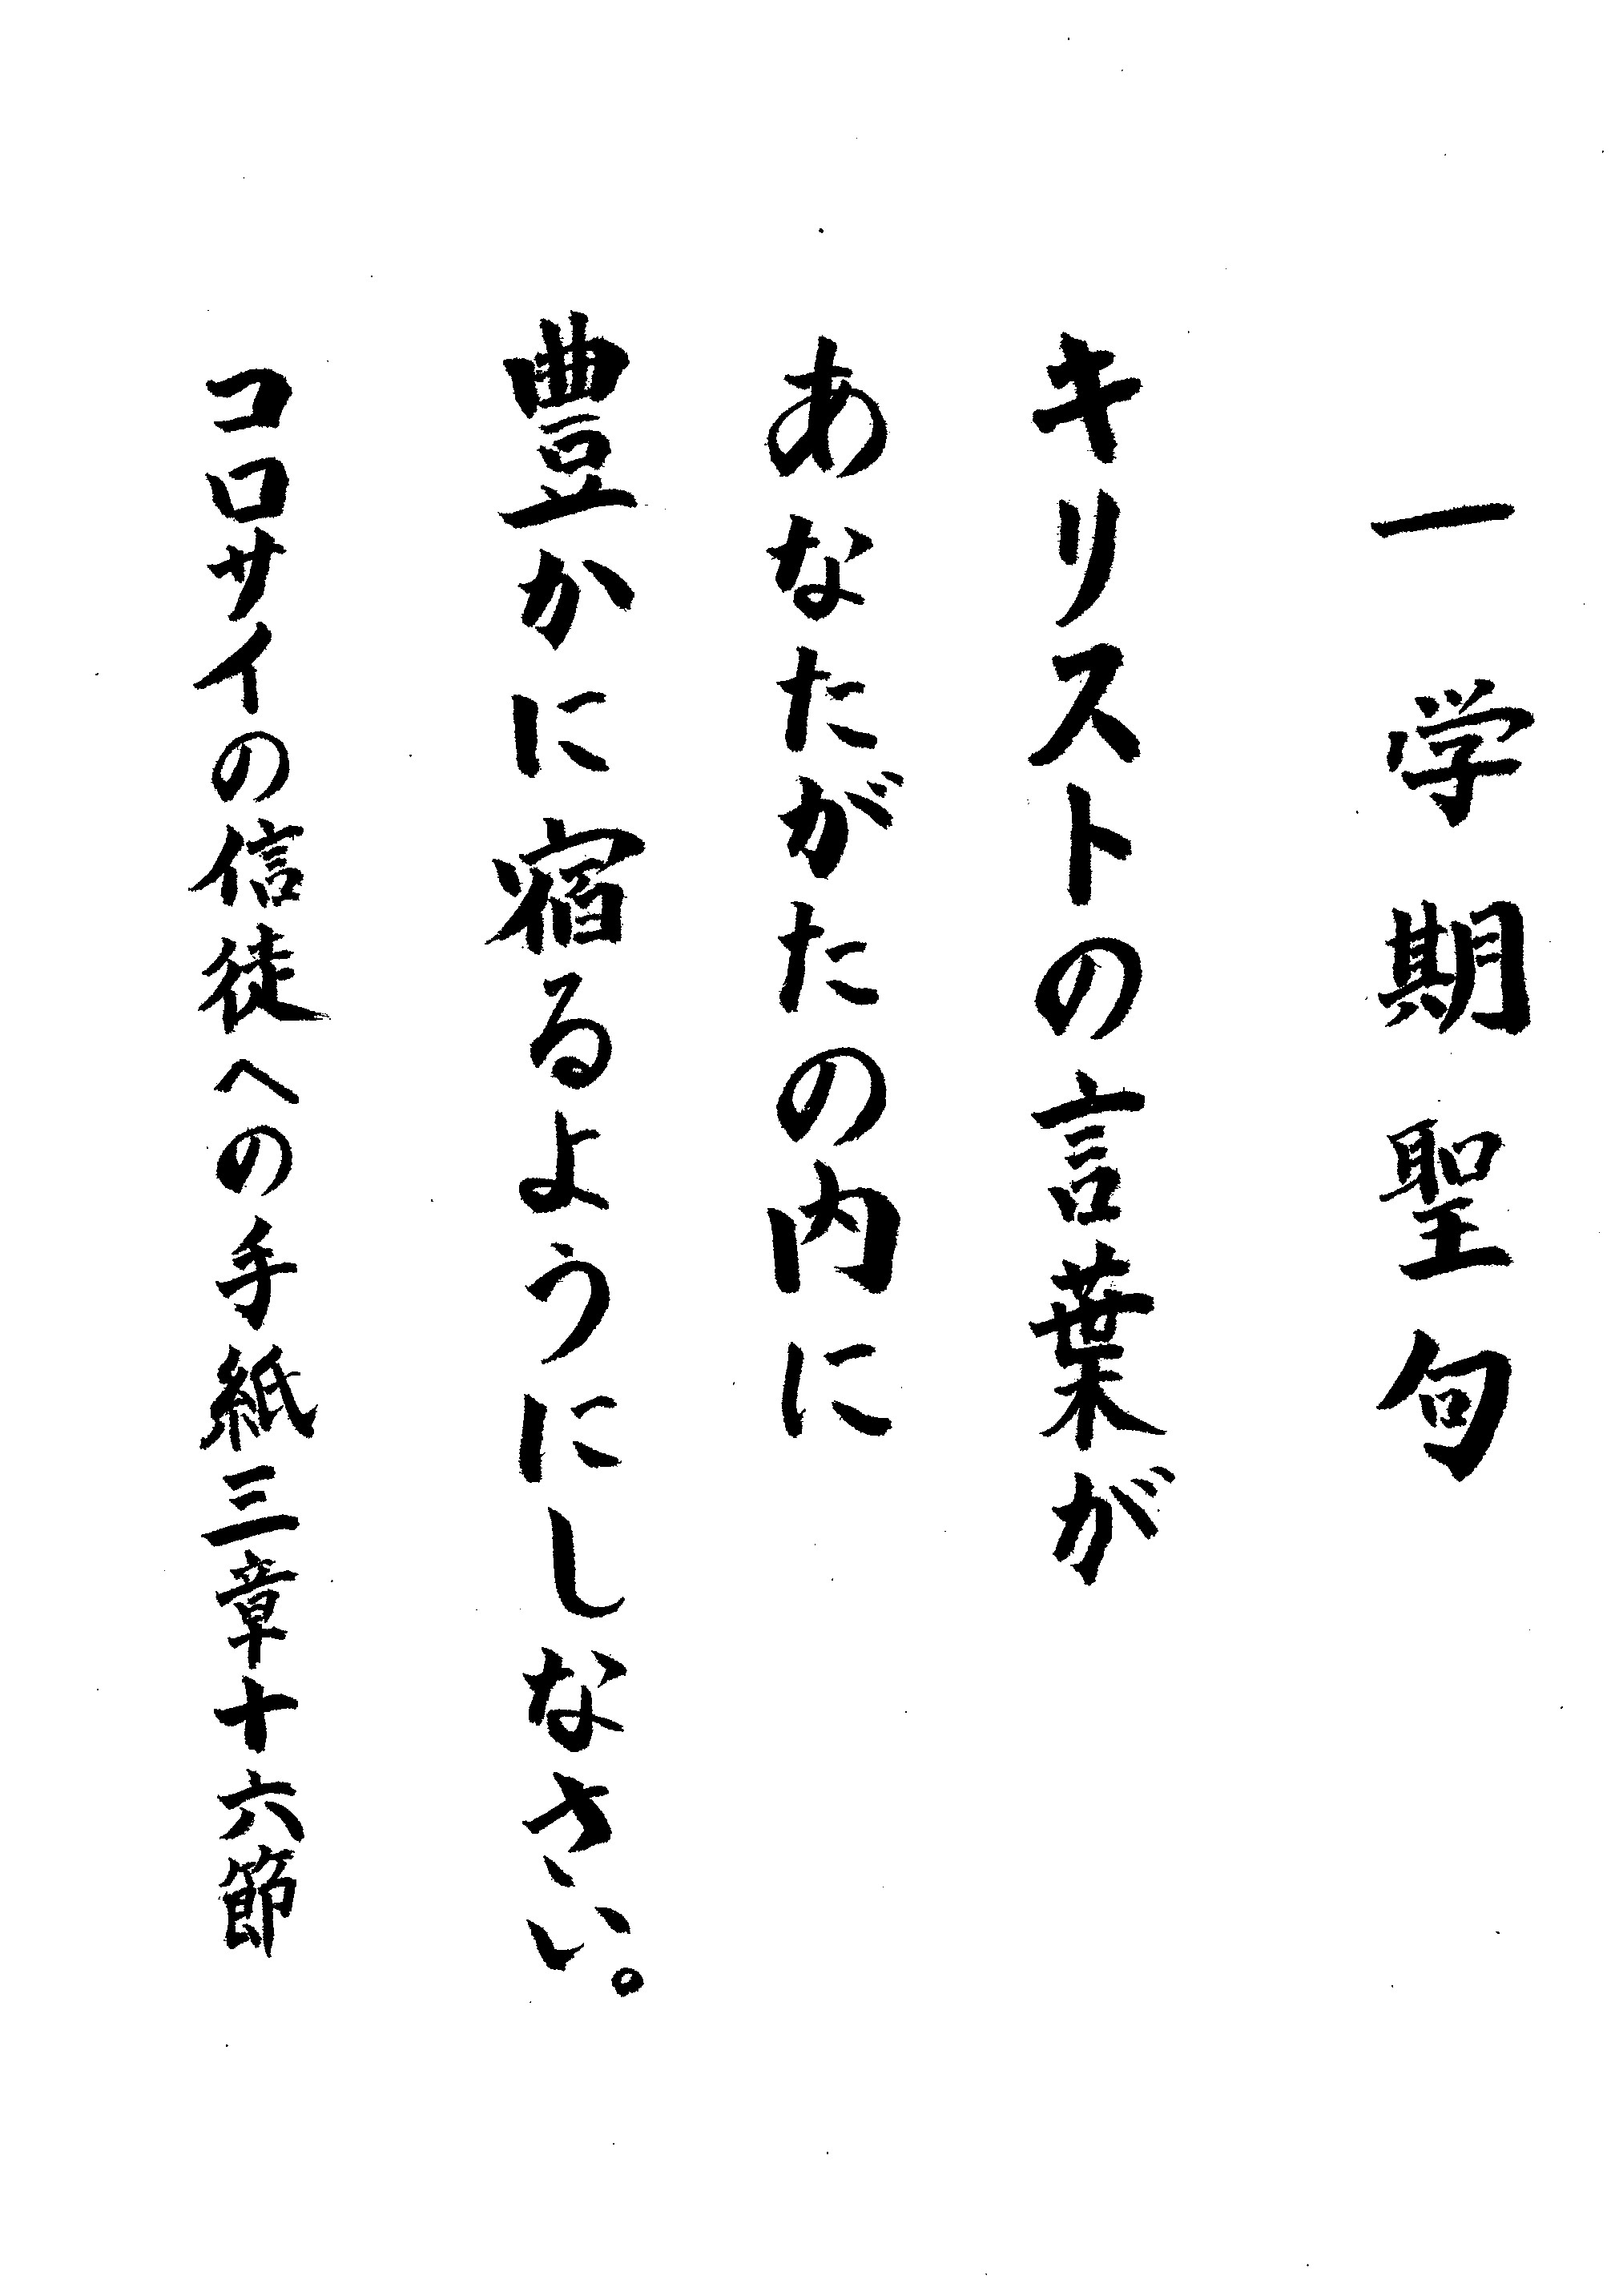 一学期聖句
キリストの言葉が
あなたがたの内に
豊かに宿るようにしなさい。
コロサイの信徒への手紙三章十六節